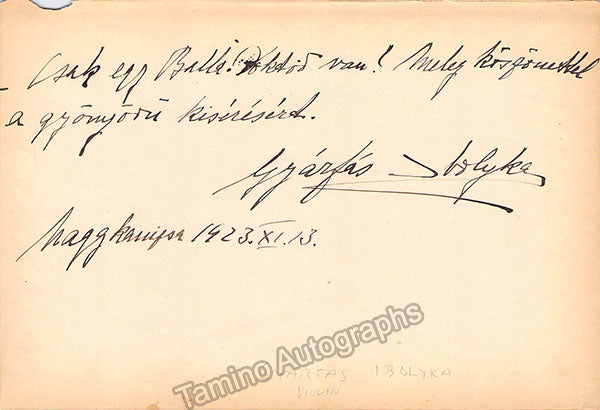 - Csak egy Balla! Doktod van! Meleg köszönettel
a gyönyörű kisérésért.
Gyárfás Ibolyka
Nagykanizsa 1923.XI.13.
Tamino Autographs
GYÁRFÁS IBOLYKA
VIOLIN